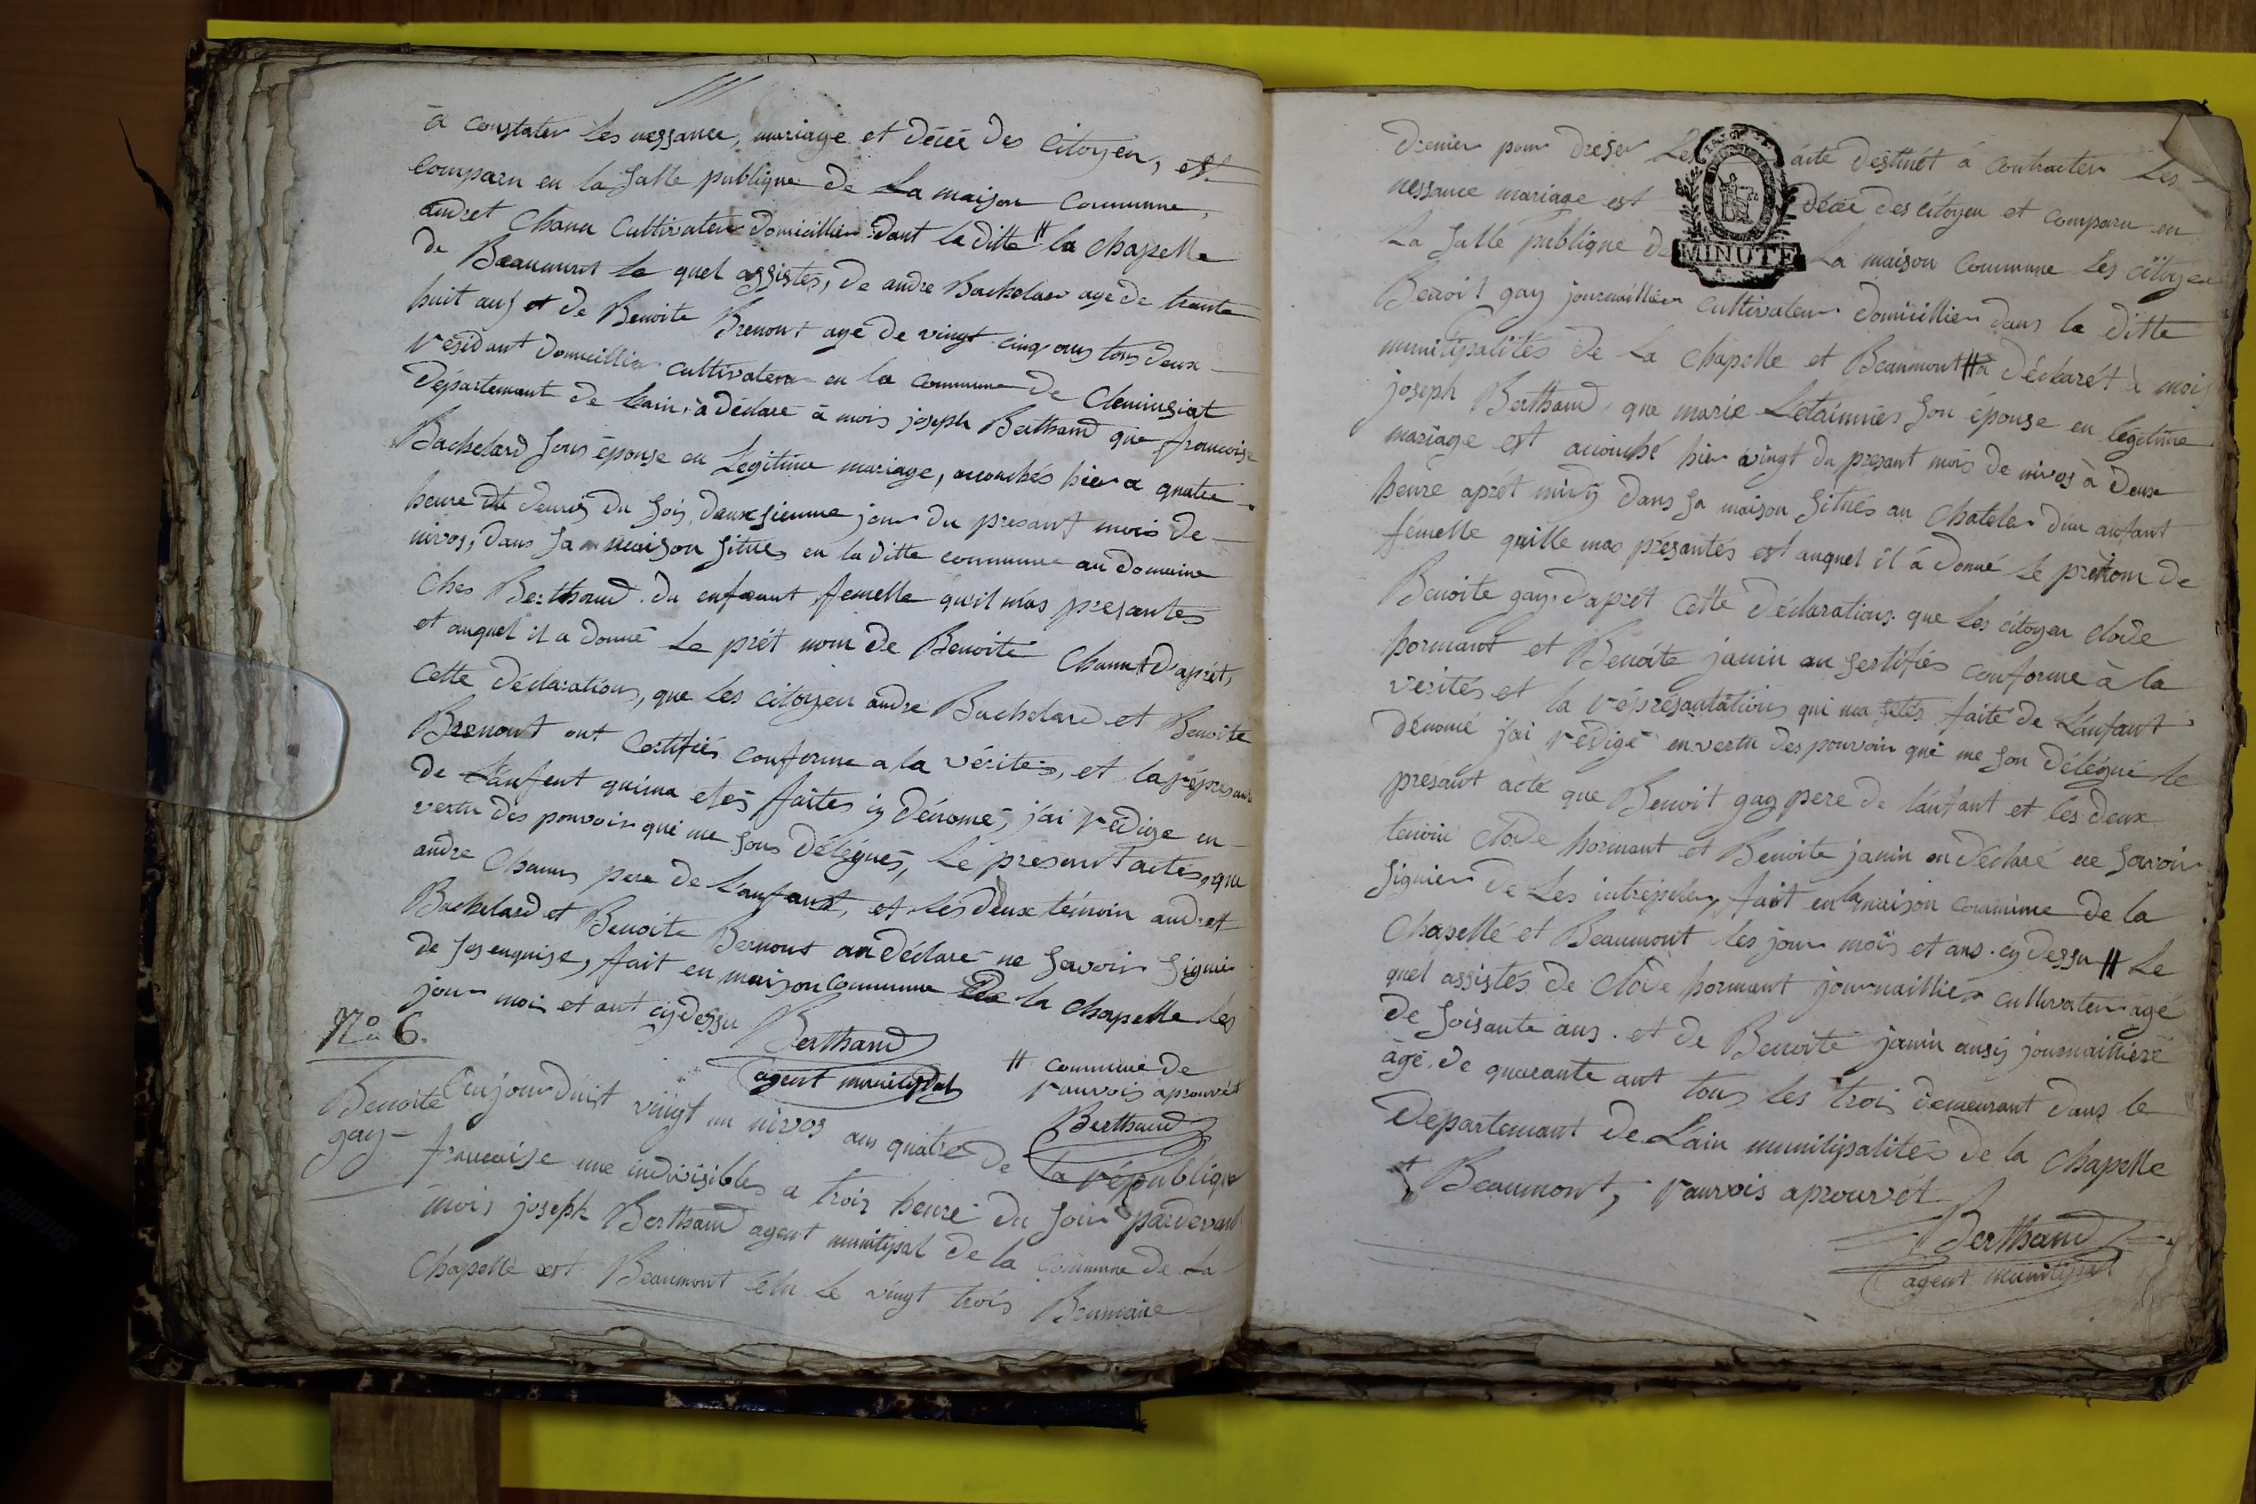 à constater les nessance, mariage et décè des citoyen, est
comparu en la salle publique de la maison commune,
andret Chanu cultivateur domicillier dant la ditte # la chapelle
de Beaumont le quel assistes, de andre Bachelar age de trante
huit ans et de Benoite Brenont agé de vingt cinq ans tous deux
résidant domicillier cultivateur en la commune de Cleminsiat
Département de Lain, à déclaré à mois joseph Berthaud que francoise
Bachelard sons épouse en Legitime mariage, acouchés hier a quatre
heure du soir, deuxsieume jour du presant mois de
nivos, dans sa maison situés en la ditte commune au domaine
Ches Berthaud du enfaant femelle qu'il mas presantes
et auquel il a donné le prét nom de Benoite Chanu d'aprét,
cette déclaration, que les citoyen andre Bachelard et Benoite
Brenont ont certifiés conforme a la vérités, et la représant
de L'aufent quima etés faites cy dénomé, j'ai rédige en
vertu des pouvoir qui me sons délégués, le présant actes, que
andre Chanu pere de L'aufant, et les deux témoin andret
Bachelard et Benoite Bernont an déclaré ne savoir signier
de ses enquise, fait en maison commune de la chapelle les
jour moi et ant cy dessu Berthaud
agent municipal
# commune de
ranvois aprouvét
Berthaud
N° 6.
Benoite
gay
Aujourduit vingt un nivos an quatre de la république
francaise une indivisibles a trois heure du soir pardevant
moi, joseph Berthaud agent municipal de la commune de la
Chapelle est Beaumont élu le vingt trois Brumaire
drenier pour dréser Les acte déstinét à contracter Les
nessance mariage est décée des citoyen et comparu en
La salle publique de La maison commune Les citoyen
MINUTE
Benoit gay journaillier cultivateur domicillier dans la ditte
municipalités de La chapelle et Beaumont # à déclarét à moi
joseph Berthaud, que marie Letaimmes son épouse en légitime
mariage est acouché hier vingt du présant mois de nivos à deux
heure aprét midy dans sa maison situés au Chateler d'un anfant
fémelle quille mas présantés est auquel il à donné le prénom de
Benoite gay. d'aprét cette déclarations que les citoyen clode
hormant et Benoite janin an sertifiés conforme à la
vérités et la réprésantations qui ma etés faite de L'anfant
dénomé j'ai rédigé en vertu des pouvoir qui me son délégué le
présant acte que Benoit gay pere de l'anfant et les deux
temoin clode hormant et Benoite janin on déclaré ne savoir
signier de Les intrépeler, fait en la maison commune de la
Chapelle et Beaumont les jour mois et ans cy dessu # Le
quel assistés de clode hormant journaillier cultivateur agé
de soisante ans. et de Benoite janin ausy journailliere
agé de quarante ant tous les trois demeurant dans le
Département de L'ain municipalités de la chapelle
et Beaumont, ranvois aprouvét
Berthaud
agent municipal